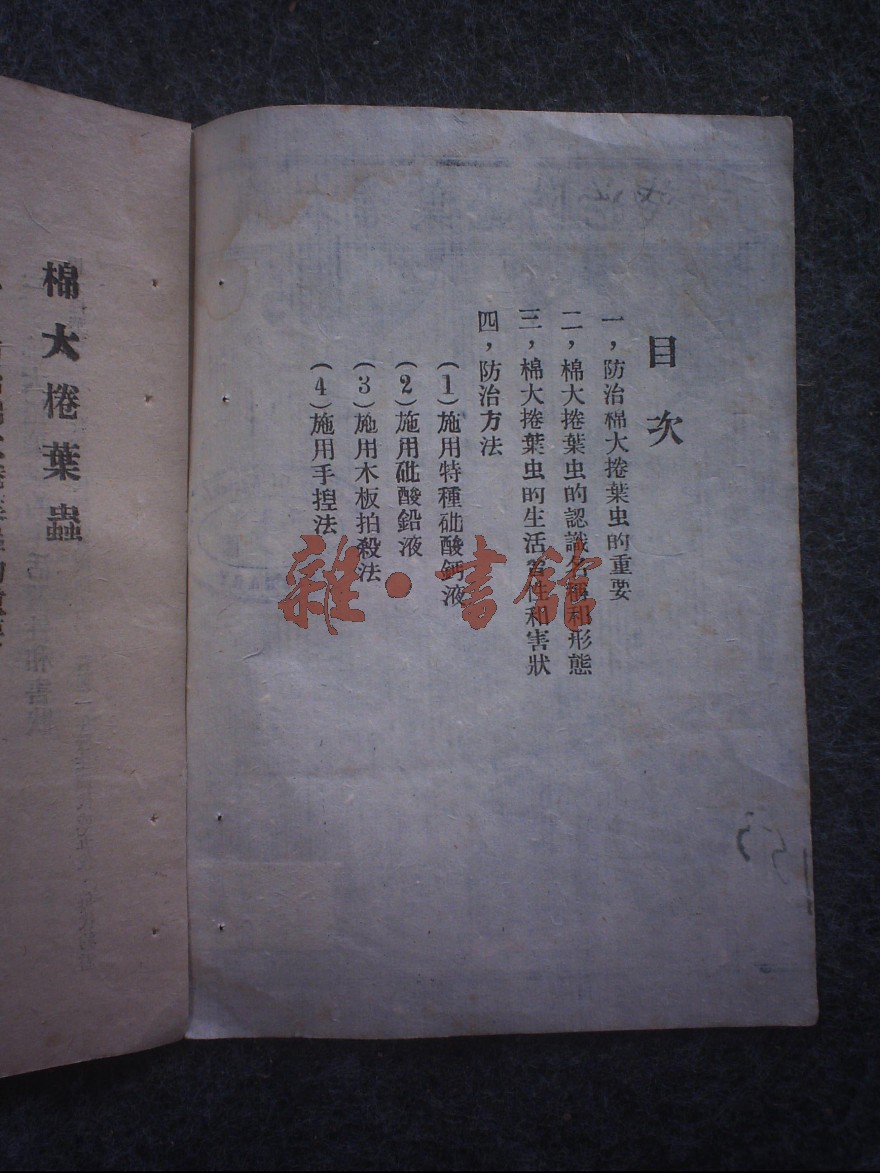 目次
一，防治棉大捲葉虫的重要
二，棉大捲葉虫的認識名稱和形態
三，棉大捲葉虫的生活習性和害狀
四，防治方法
(1)施用特種砒酸鈣液
(2)施用砒酸鉛液
(3)施用木板拍殺法
(4)施用手捏法
棉大捲葉蟲
雜·書館